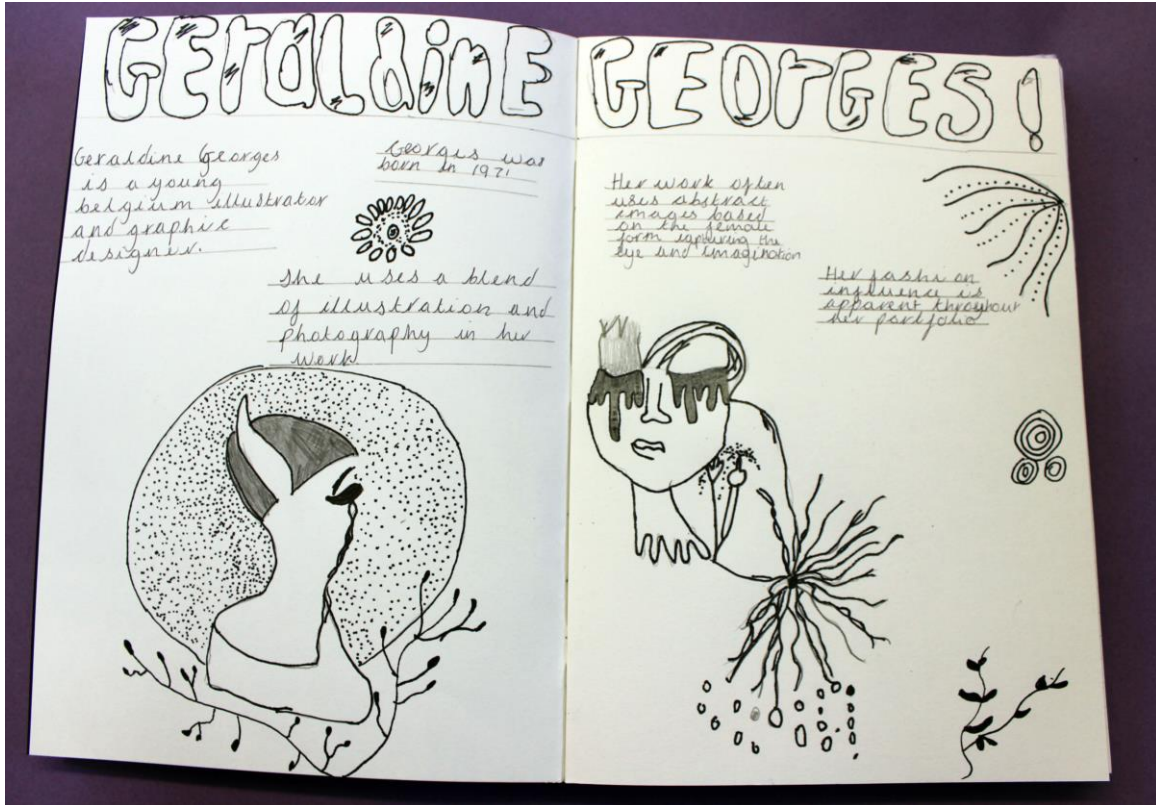 GEraLdinE
Geraldine Georges
is a young
belgium illustrator
and graphic
designer.
Georges was
born in 1971
She uses a blend
of illustration and
photography in her
work
GEOrGES!
Her work often
uses abstract
images based
on the female
form capturing the
eye and imagination
Her fashion
influence is
apparent throughout
her portfolio